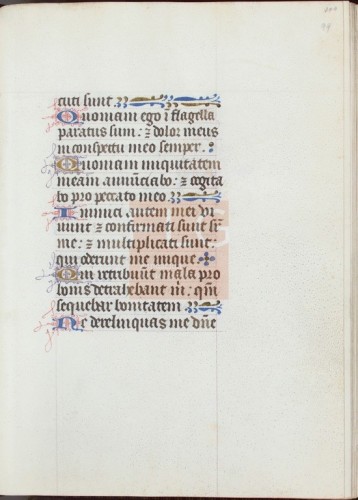 cuti sunt.
Quoniam ego ī flagella
paratus sum: ⁊ dolor meus
in conspectu meo semper.
Quoniam iniquitatem
meam annūciabo: ⁊ cogita
bo pro peccato meo.
Inimici autem mei vi
uunt ⁊ confirmati sunt sr̄
me: ⁊ multiplicati sunt:
qui oderunt me inique
Qui retribuūt mala pro
bonis detrahebant m̄: qm̄
sequebar bonitatem
Ne derelinquas me dn̄e